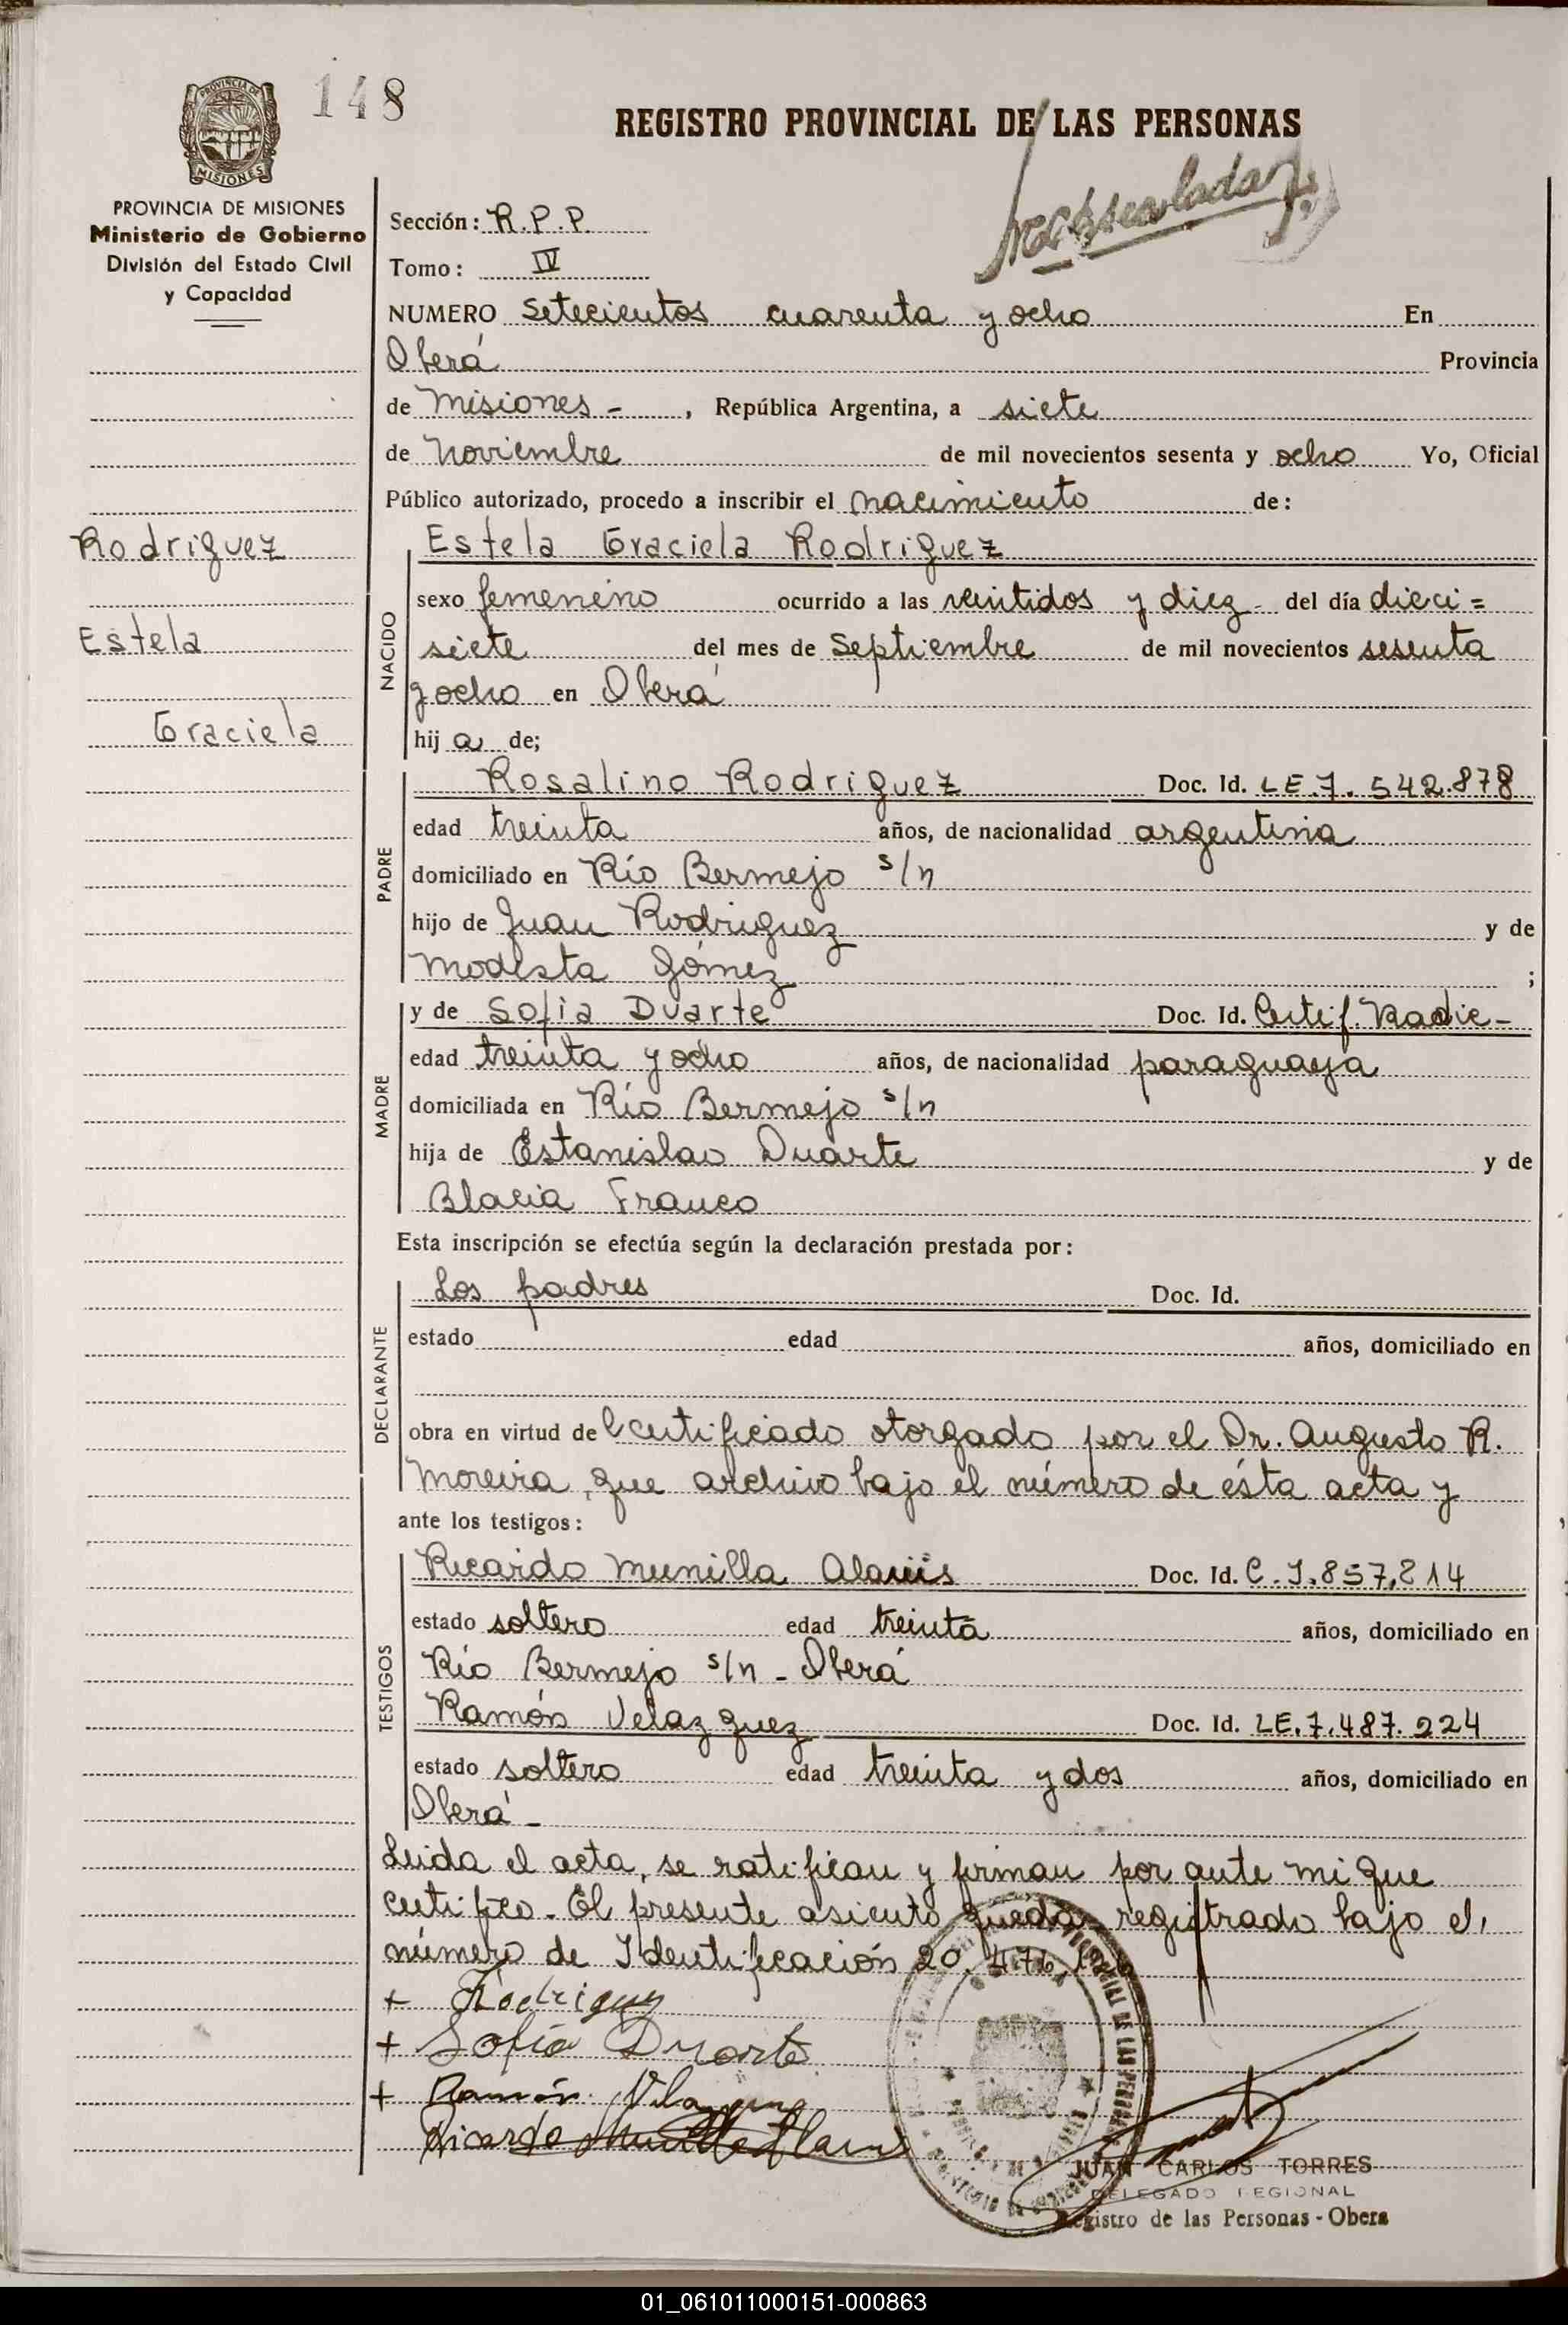 148
REGISTRO PROVINCIAL DE LAS PERSONAS
PROVINCIA DE
MISIONES
PROVINCIA DE MISIONES
Ministerio de Gobierno
División del Estado Civil
y Capacidad
Sección: R.P.P.
Tomo: IV
NUMERO Setecientos cuarenta y ocho En
Oberá Provincia
de Misiones - , República Argentina, a siete
de Noviembre de mil novecientos sesenta y ocho Yo, Oficial
Público autorizado, procedo a inscribir el nacimiento de:
Rodriguez
Estela
Graciela
NACIDO
Estela Graciela Rodriguez
sexo femenino ocurrido a las veintidos y diez - del día dieci=
siete del mes de Septiembre de mil novecientos sesenta
y ocho en Oberá
hij a de;
PADRE
Rosalino Rodriguez Doc. Id. LE.7.542.878
edad treinta años, de nacionalidad argentina
domiciliado en Río Bermejo s/n
hijo de Juan Rodriguez y de
Modesta Gómez ;
MADRE
y de Sofia Duarte Doc. Id. Certif. Radic-
edad treinta y ocho años, de nacionalidad paraguaya
domiciliada en Río Bermejo s/n
hija de Estanislao Duarte y de
Blacia Franco
Esta inscripción se efectúa según la declaración prestada por:
DECLARANTE
Los padres Doc. Id.
estado edad años, domiciliado en
obra en virtud del certificado otorgado por el Dr. Augusto R.
Moreira, que archivo bajo el número de ésta acta y
ante los testigos:
TESTIGOS
Ricardo Munilla Doc. Id. C.I.857.814
estado soltero edad treinta años, domiciliado en
Río Bermejo s/n - Oberá
Ramón Velazquez Doc. Id. LE.7.487.224
estado soltero edad treinta y dos años, domiciliado en
Oberá -
Leida el acta, se ratifican y firman por ante mi que
certifico - El presente asiento queda registrado bajo el
número de Identificación 20.476.
+ Rodriguez
+ Sofia Duarte
+ Ramón
Ricardo
JUAN CARLOS TORRES
DELEGADO REGIONAL
Registro de las Personas - Obera
01_061011000151-000863